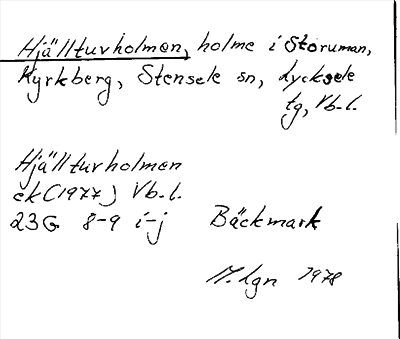 Hjälltuvholmen, holme i Storuman,
Kyrkberg, Stensele sn, Lycksele
tg, Vb.l.
Hjälltuvholmen
ek (1977) Vb.l.
23G 8-9 i-j Bäckmark
M. Lgn 1978